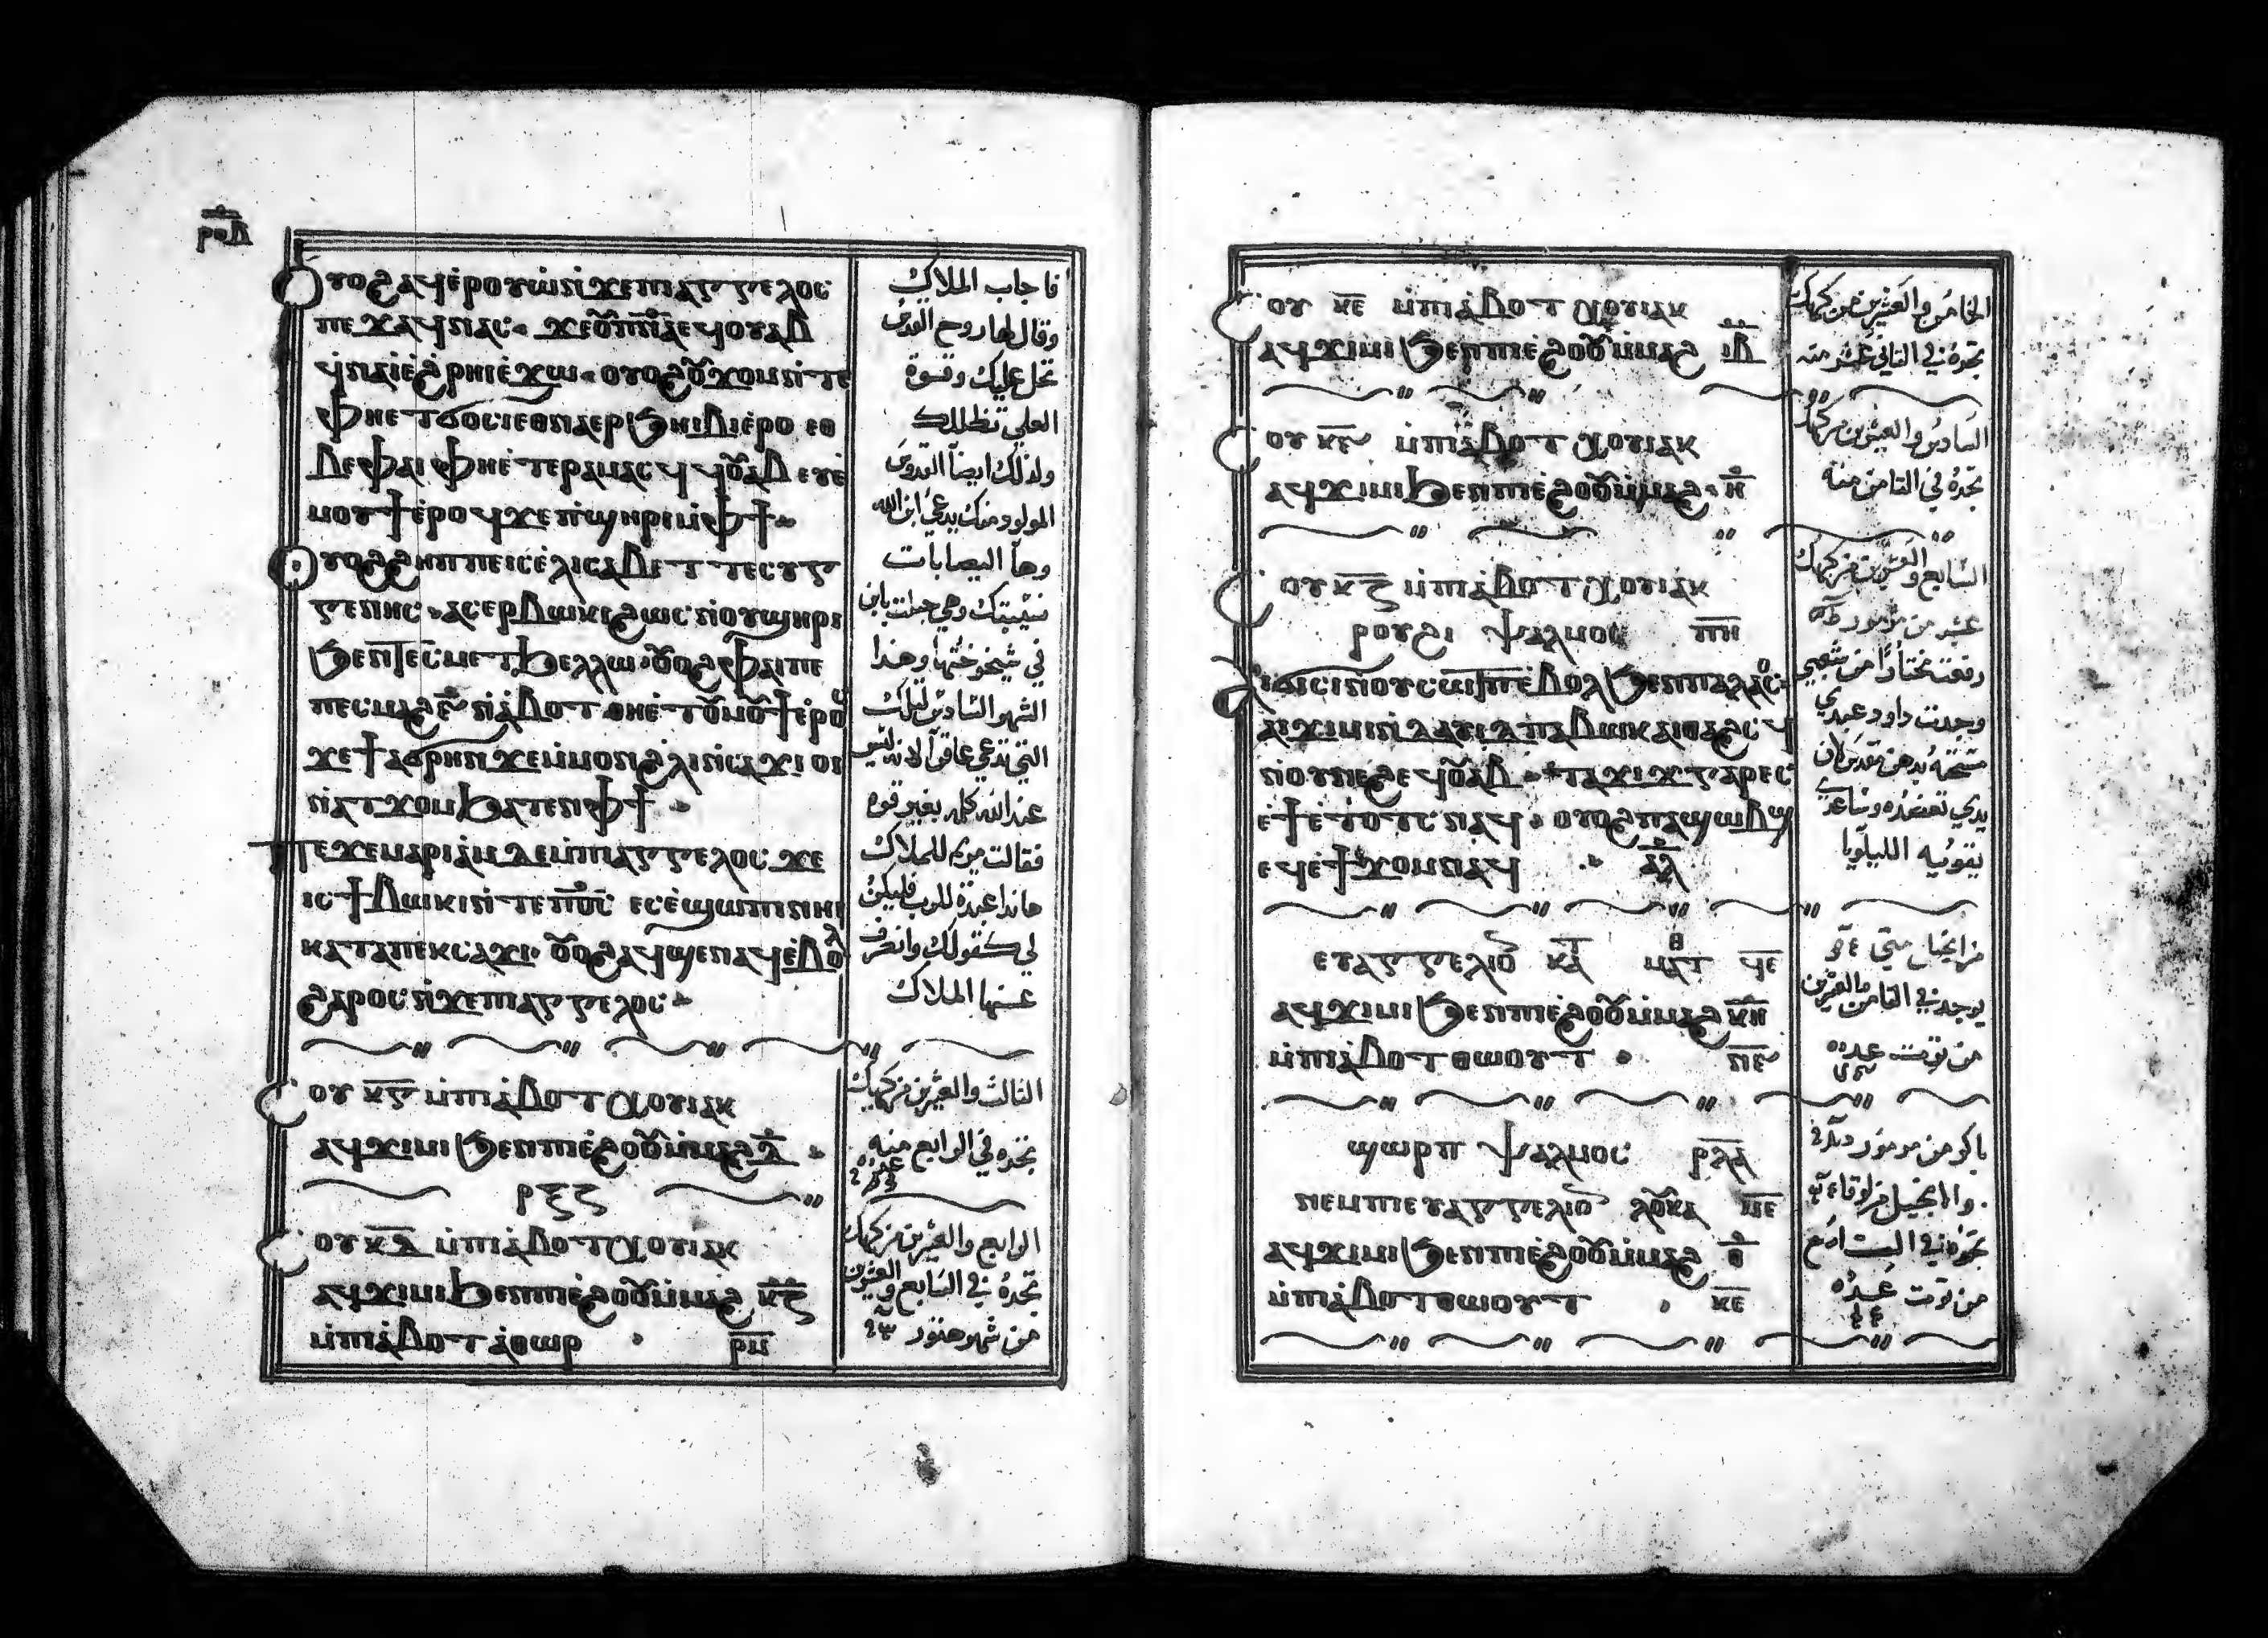 ⲣⲟⲃ
Ⲟⲩⲟϩ ⲁϥⲉ̀ⲣⲟⲩⲱ̀ ⲛ̀ϫⲉⲡⲓⲁⲅⲅⲉⲗⲟⲥ
ⲡⲉϫⲁϥ ⲛⲁⲥ· ϫⲉⲟⲩⲡ̅ⲛ̅ⲁ̅ ⲉϥⲟⲩⲁⲃ
ϥⲛⲁⲓ̀ ⲉ̀ϩⲣⲏⲓ ⲉ̀ϫⲱ· ⲟⲩⲟϩ ⲟⲩϫⲟⲙ ⲛ̀ⲧⲉ
ⲫⲏⲉⲧϭⲟⲥⲓ ⲉⲑⲛⲁⲉⲣϧⲏⲓⲃⲓ ⲉ̀ⲣⲟ ⲉⲑ
ⲃⲉⲫⲁⲓ ⲫⲏⲉ̀ⲧⲉⲣⲁⲙⲁⲥϥ ϥⲟⲩⲁⲃ ⲉⲩⲉ̀
ⲙⲟⲩϯ ⲉ̀ⲣⲟϥ ϫⲉ ⲡ̀ϣⲏⲣⲓ ⲙ̀ⲫϯ·
Ⲟⲩⲟϩ ϩⲏⲡⲡⲉ ⲓⲥ ⲉ̀ⲗⲓⲥⲁⲃⲉⲧ ⲧⲉⲥⲩⲅ
ⲅⲉⲛⲏⲥ· ⲁⲥⲉⲣⲃⲱⲕⲓ ϩⲱⲥ ⲛ̀ⲟⲩϣⲏⲣⲓ
ϧⲉⲛⲧⲉⲥⲙⲉⲧϧⲉⲗⲗⲱ· ⲟⲩⲟϩ ⲫⲁⲓ ⲡⲉ
ⲡⲉⲥⲙⲁϩ ⲋ̅ ⲛ̀ⲁ̀ⲃⲟⲧ ⲑⲏⲉ̀ⲧⲟⲩⲙⲟⲩϯ ⲉ̀ⲣⲟⲥ
ϫⲉ ϯⲁϭⲣⲏⲛ ϫⲉ ⲙ̀ⲙⲟⲛ ϩ̀ⲗⲓ ⲛ̀ⲥⲁϫⲓ ⲟⲓ
ⲛ̀ⲁⲧϫⲟⲙ ϧⲁⲧⲉⲛ ⲫϯ·
ⲡⲉϫⲉ ⲙⲁⲣⲓⲁ̀ⲙ ⲇⲉ ⲙ̀ⲡⲓⲁⲅⲅⲉⲗⲟⲥ ϫⲉ
ⲓⲥ ϯⲃⲱⲕⲓ ⲛ̀ⲧⲉ ⲡⲟ̅ⲥ̅ ⲉⲥⲉ̀ϣⲱⲡⲓ ⲛⲏⲓ
ⲕⲁⲧⲁ ⲡⲉⲕⲥⲁϫⲓ· ⲟⲩⲟϩ ⲁϥϣⲉⲛⲁϥ ⲉ̀ⲃⲟⲗ
ϩⲁⲣⲟⲥ ⲛ̀ϫⲉⲡⲓⲁⲅⲅⲉⲗⲟⲥ·
ⲥⲟⲩ ⲕ̅ⲅ̅ ⲙ̀ⲡⲓⲁ̀ⲃⲟⲧ ⲭⲟⲓⲁⲕ
ⲁϥϫⲓⲙⲓ ϧⲉⲛⲡⲓⲉ̀ϩⲟⲟⲩ ⲙ̀ⲙⲁϩ ⲇ̅
ⲣⲝⲍ
ⲥⲟⲩ ⲕ̅ⲇ̅ ⲙ̀ⲡⲓⲁ̀ⲃⲟⲧ ⲭⲟⲩⲓⲁⲕ
ⲁϥϫⲓⲙⲓ ϧⲉⲛⲡⲓⲉ̀ϩⲟⲟⲩ ⲙ̀ⲙⲁϩ ⲕ̅ⲍ̅
ⲙ̀ⲡⲓⲁ̀ⲃⲟⲧ ⲁ̀ⲑⲱⲣ · ⲣ̅ⲙ̅
فاجاب الملاك
وقال لها روح القدس
تحل عليك وقوة
العلي تظللك
ولذلك ايضاً القدوس
المولود منك يدعي ابن الله
وها اليصابات
نسيبتك وهي حبلت بابن
في شيخوختها وهذا
الشهر السادس لتلك
التي تدعي عاقراً لانه ليس
عند الله كلمه بغير قوه
فقالت مريم للملاك
هانذا عبدة للرب فليكن
لي كقولك وانصرف
عنها الملاك
الثالث والعشرين من كيهك
تجده في الرابع منه
الرابع والعشرين من كيهك
تجدهُ في السابع والعشرين
من شهر هتور
ⲥⲟⲩ ⲕ̅ⲉ̅ ⲙ̀ⲡⲓⲁ̀ⲃⲟⲧ ⲭⲟⲩⲓⲁⲕ
ⲁϥϫⲓⲙⲓ ϧⲉⲛⲡⲓⲉ̀ϩⲟⲟⲩ ⲙ̀ⲙⲁϩ ⲓ̅ⲃ̅
ⲥⲟⲩ ⲕ̅ⲋ̅ ⲙ̀ⲡⲓⲁ̀ⲃⲟⲧ ⲭⲟⲩⲓⲁⲕ
ⲁϥϫⲓⲙⲓ ϧⲉⲛⲡⲓⲉ̀ϩⲟⲟⲩ ⲙ̀ⲙⲁϩ· ⲏ̅
ⲥⲟⲩ ⲕ̅ⲍ̅ ⲙ̀ⲡⲓⲁ̀ⲃⲟⲧ ⲭⲟⲩⲓⲁⲕ
ⲣⲟⲩϩⲓ ⲯⲁⲗⲙⲟⲥ ⲡ̅ⲏ̅
ⲁⲓϭⲓⲥⲓ ⲛ̀ⲟⲩⲥⲱⲧⲡ ⲉ̀ⲃⲟⲗ ϧⲉⲛⲡⲁⲗⲁⲟⲥ·
ⲁⲓϫⲓⲙⲓ ⲛ̀ⲇⲁⲩⲓⲇ ⲡⲁⲃⲱⲕ ⲁⲓⲑⲁϩⲥϥ
ⲛ̀ⲟⲩⲛⲉϩ ⲉϥⲟⲩⲁⲃ· ⲧⲁϫⲓϫ ⲅⲁⲣ ⲉⲥ
ⲉ̀ϯⲉ̀ⲧⲟⲧⲥ ⲛⲁϥ· ⲟⲩⲟϩ ⲡⲁϣⲱⲃϣ
ⲉϥⲉ̀ϯϫⲟⲙ ⲛⲁϥ · ⲁ̅ⲗ̅
ⲉⲩⲁⲅⲅⲉⲗⲓⲟⲛ ⲕⲁⲧ ⲙⲁⲧⲑ ϥ̅ⲉ̅
ⲁϥϫⲓⲙⲓ ϧⲉⲛⲡⲓⲉ̀ϩⲟⲟⲩ ⲙ̀ⲙⲁϩ ⲕ̅ⲏ̅
ⲙ̀ⲡⲓⲁ̀ⲃⲟⲧ ⲑⲱⲟⲩⲧ · ⲛ̅ⲋ̅
ϣⲱⲣⲡ ⲯⲁⲗⲙⲟⲥ ⲣ̅ⲗ̅ⲁ̅
ⲛⲉⲙ ⲡⲓⲉⲩⲁⲅⲅⲉⲗⲓⲟⲛ ⲗⲟⲩⲕⲁ ⲙ̅ⲉ̅
ⲁϥϫⲓⲙⲓ ϧⲉⲛⲡⲓⲉ̀ϩⲟⲟⲩ ⲙ̀ⲙⲁϩ ⲑ̅
ⲙ̀ⲡⲓⲁ̀ⲃⲟⲧ ⲑⲱⲟⲩⲧ · ⲕ̅ⲉ̅
الخامس والعشرين من كيهك
تجدهُ في الثاني عشر منه
السادس والعشرين من كيهك
تجدهُ في الثامن منه
السابع والعشرين من كيهك
عشيه من مزمور
رفعت مختاراً من شعبي
وجدت داود عبدي
مسحته بدهن مقدس لان
يدي تعضده وساعدي
يقويه الليلويا
من انجيل متي
يوجد في الثامن والعشرين
من توت عدده
باكر من مزمور
والانجيل من لوقا
تجدهُ في
من توت عدده